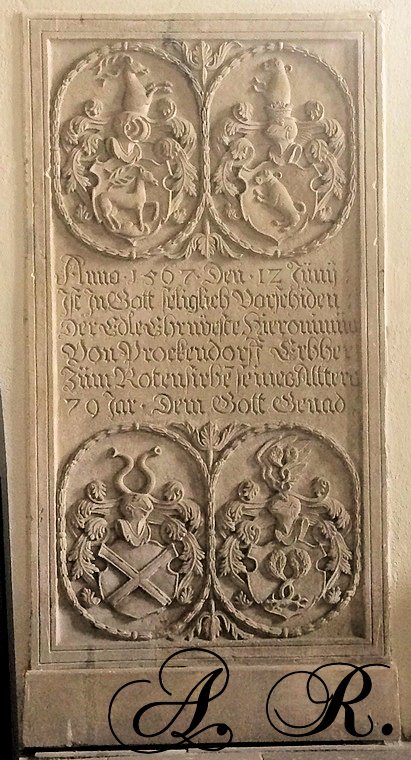 Anno · 1567 · Den · 12 Junij
Ist Jn Gott seliglich Vorschiden
Der Edle Ehrnveste Hieronimus
Von Prockendorff Erbher
Zům Rotensirbē seines Altters
79 Jar · Dem Gott Genad
A. R.